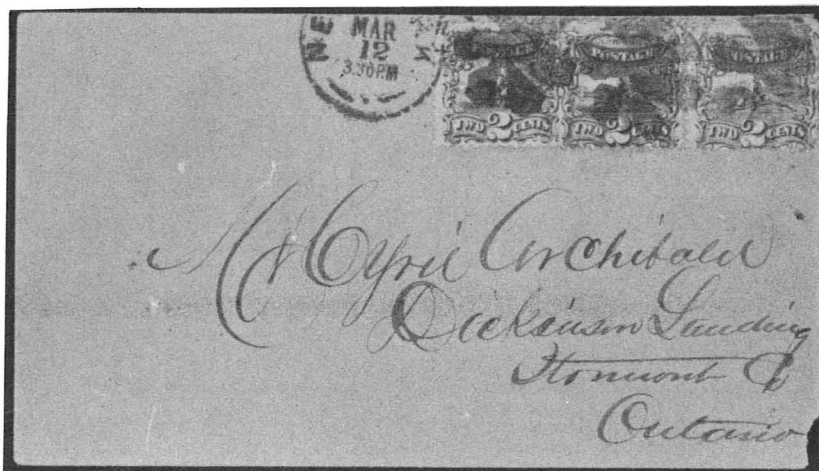 NE K
MAR
12
3.30PM
POSTAGE POSTAGE
TWO 2 CENTS TWO 2 CENTS TWO 2 CENTS
Mr Cyril Archibald
Dickinson Landing
Stormont Co
Ontario